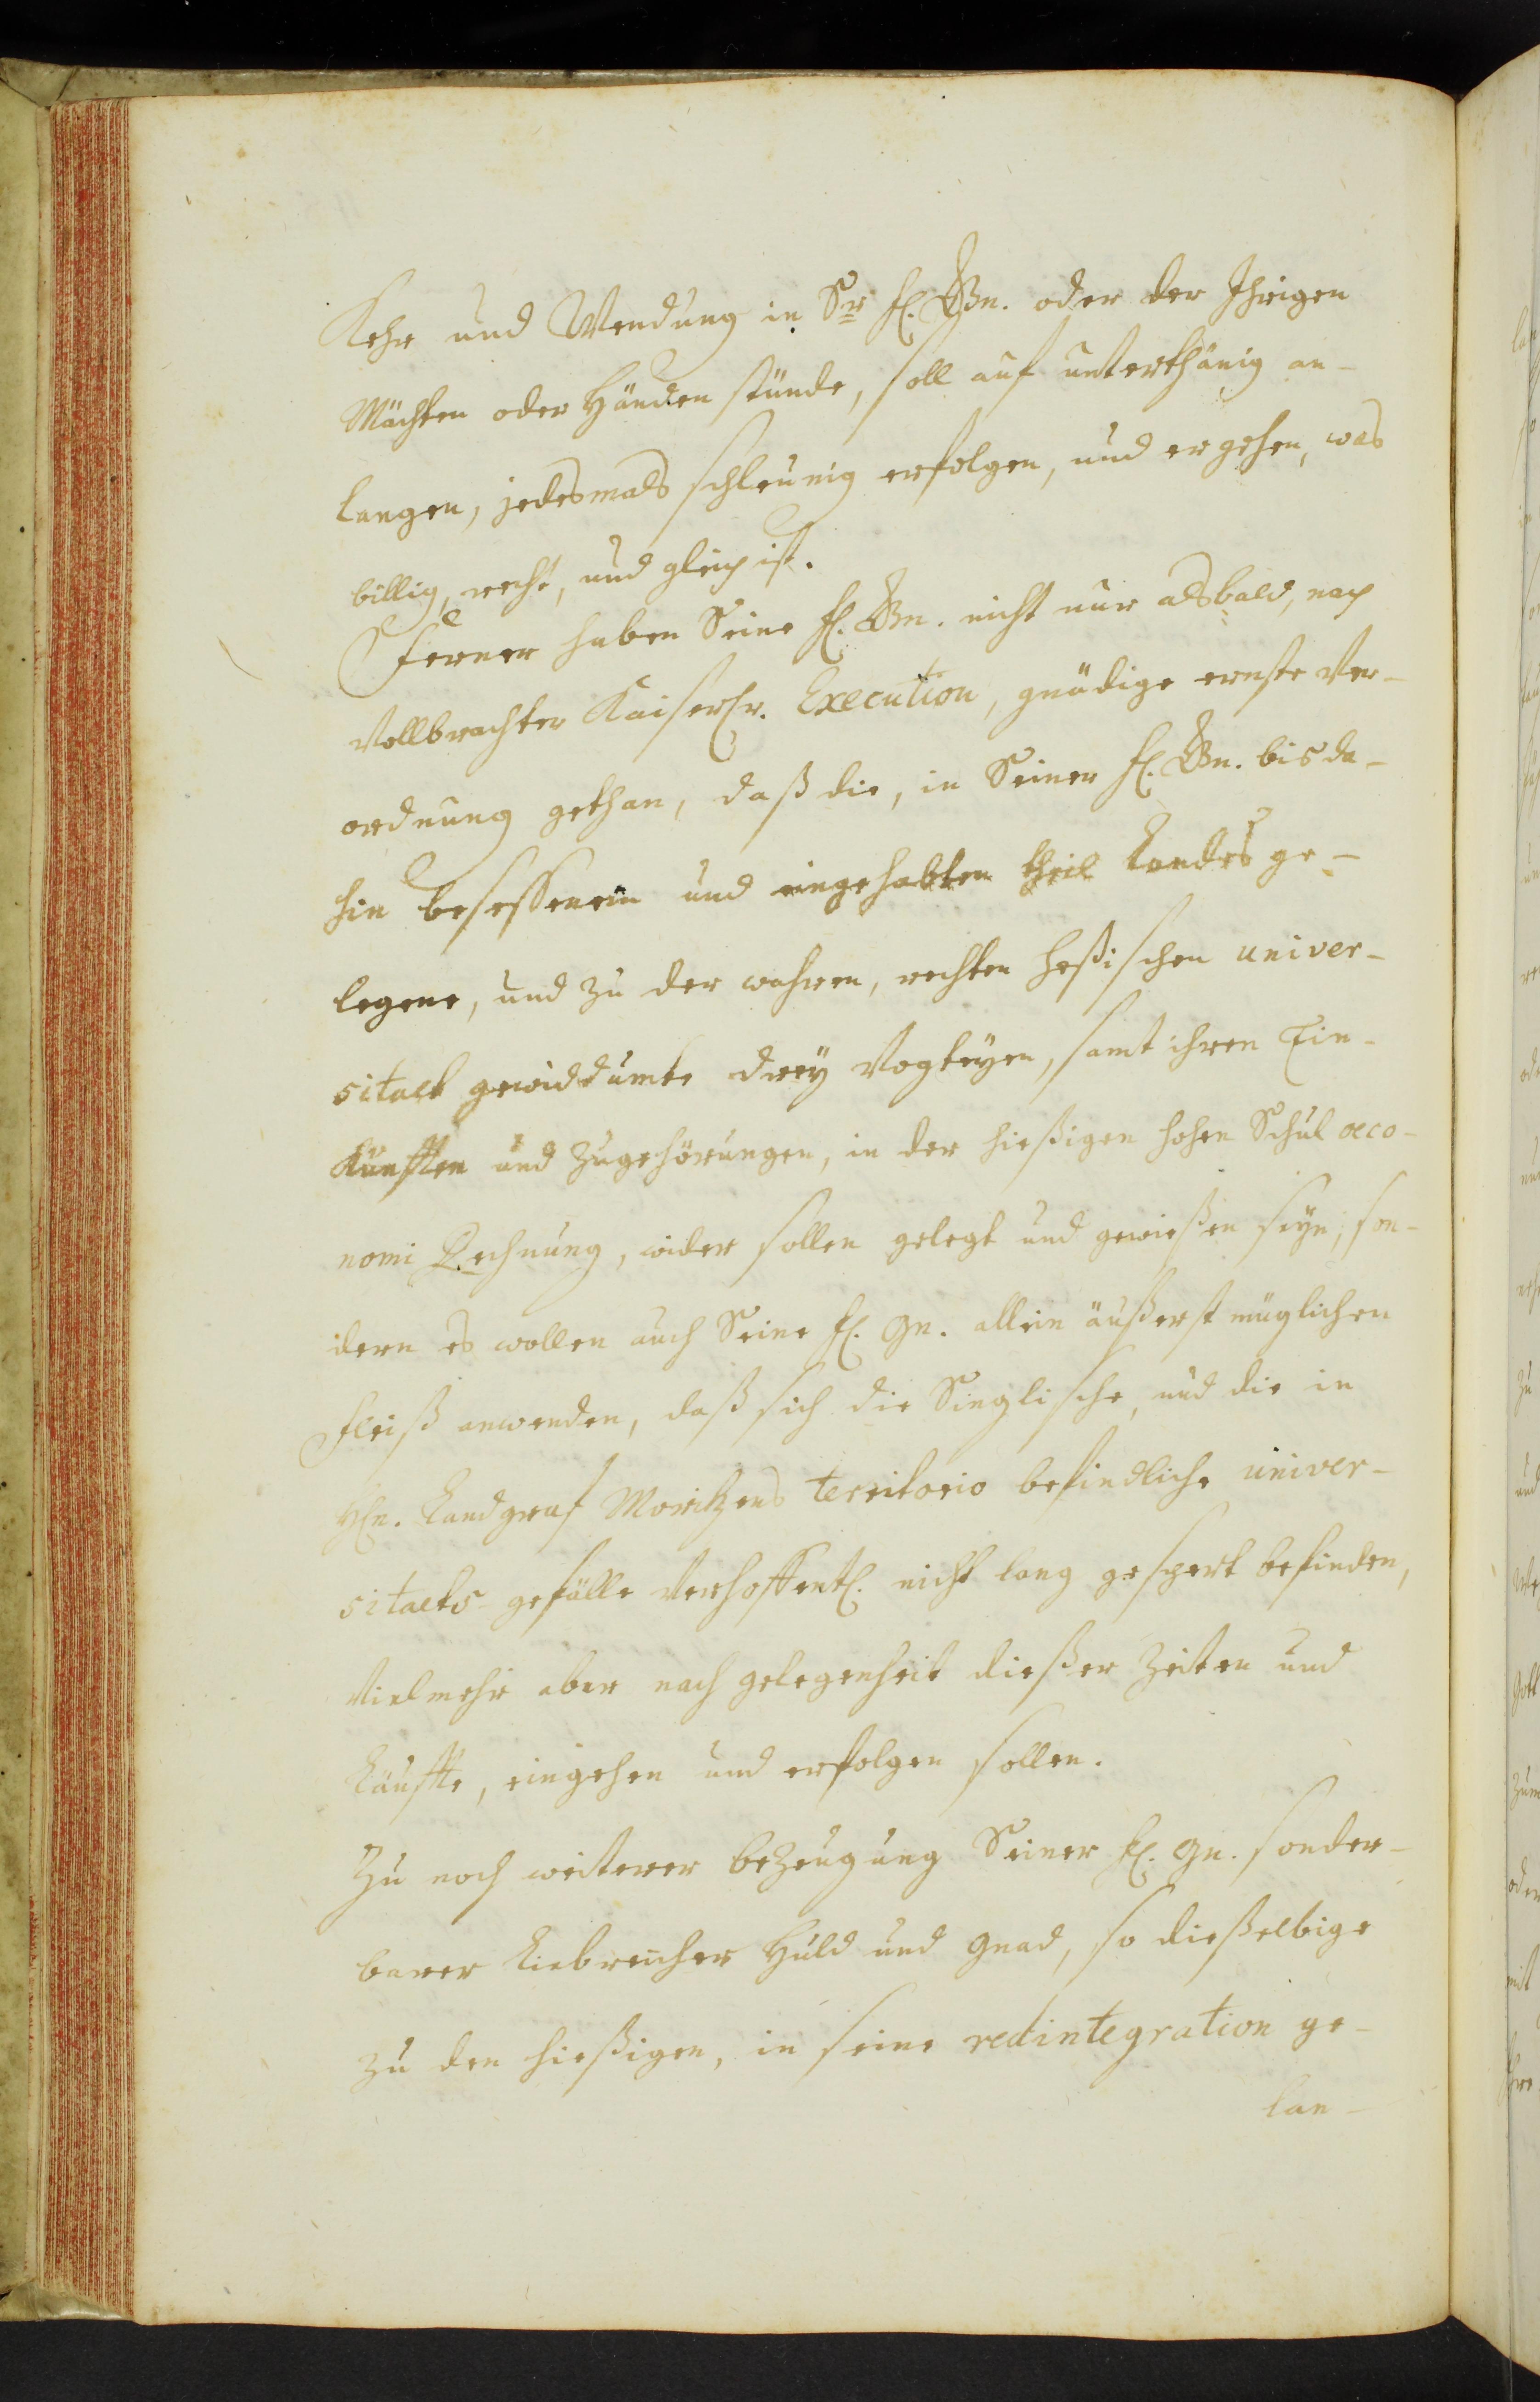 Kehr und Wendung in Sr. fl. Gn. oder der Ihrigen
Mächten oder Händen stünde, soll auf unterthänig an-
langen, jedesmals schleunig erfolgen, und ergehen, was
billig, recht, und gleich ist.
Ferner haben Seine fl. Gn. nicht nur alsbald, nach
Vollbrachter Kaiserlr. Execution, gnädige ernste Ver-
ordnung gethan, daß die, in Seiner fl. Gn. bis da-
hin besessenem und eingehabten theil Landes ge-
legene, und zu der wahren, rechten heßischen univer-
sitaet gewiddumte drey Vogteyen, samt ihren Ein-
künfften und zugehörungen, in der hießigen hohen Schul oeco-
nomi Rechnung, wider sollen gelegt und gewießen seyn, son-
dern es wollen auch Seine fl. gn. allein äußerst müglichen
fleiß anwenden, daß sich die Singlische, und die in
Hln. Landgraf Moritzens territorio befindliche univer-
sitaets-gefälle Verhoffentl. nicht lang gespert befinden,
Vielmehr aber nach gelegenheit dießer Zeiten und
Läuffte, eingehen und erfolgen sollen.
Zu noch weiterer bezeugung Seiner fl. gn. sonder-
barer Liebreicher Huld und gnad, so dießelbige
zu den hießigen, in seine redintegration ge-
lan-